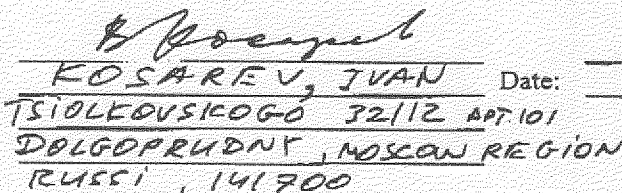 KOSAREV, IVAN Date:
TSIOLKOVSKOGO 32/12 APT.101
DOLGOPRUDNY, MOSCOW REGION
RUSSI, 141700